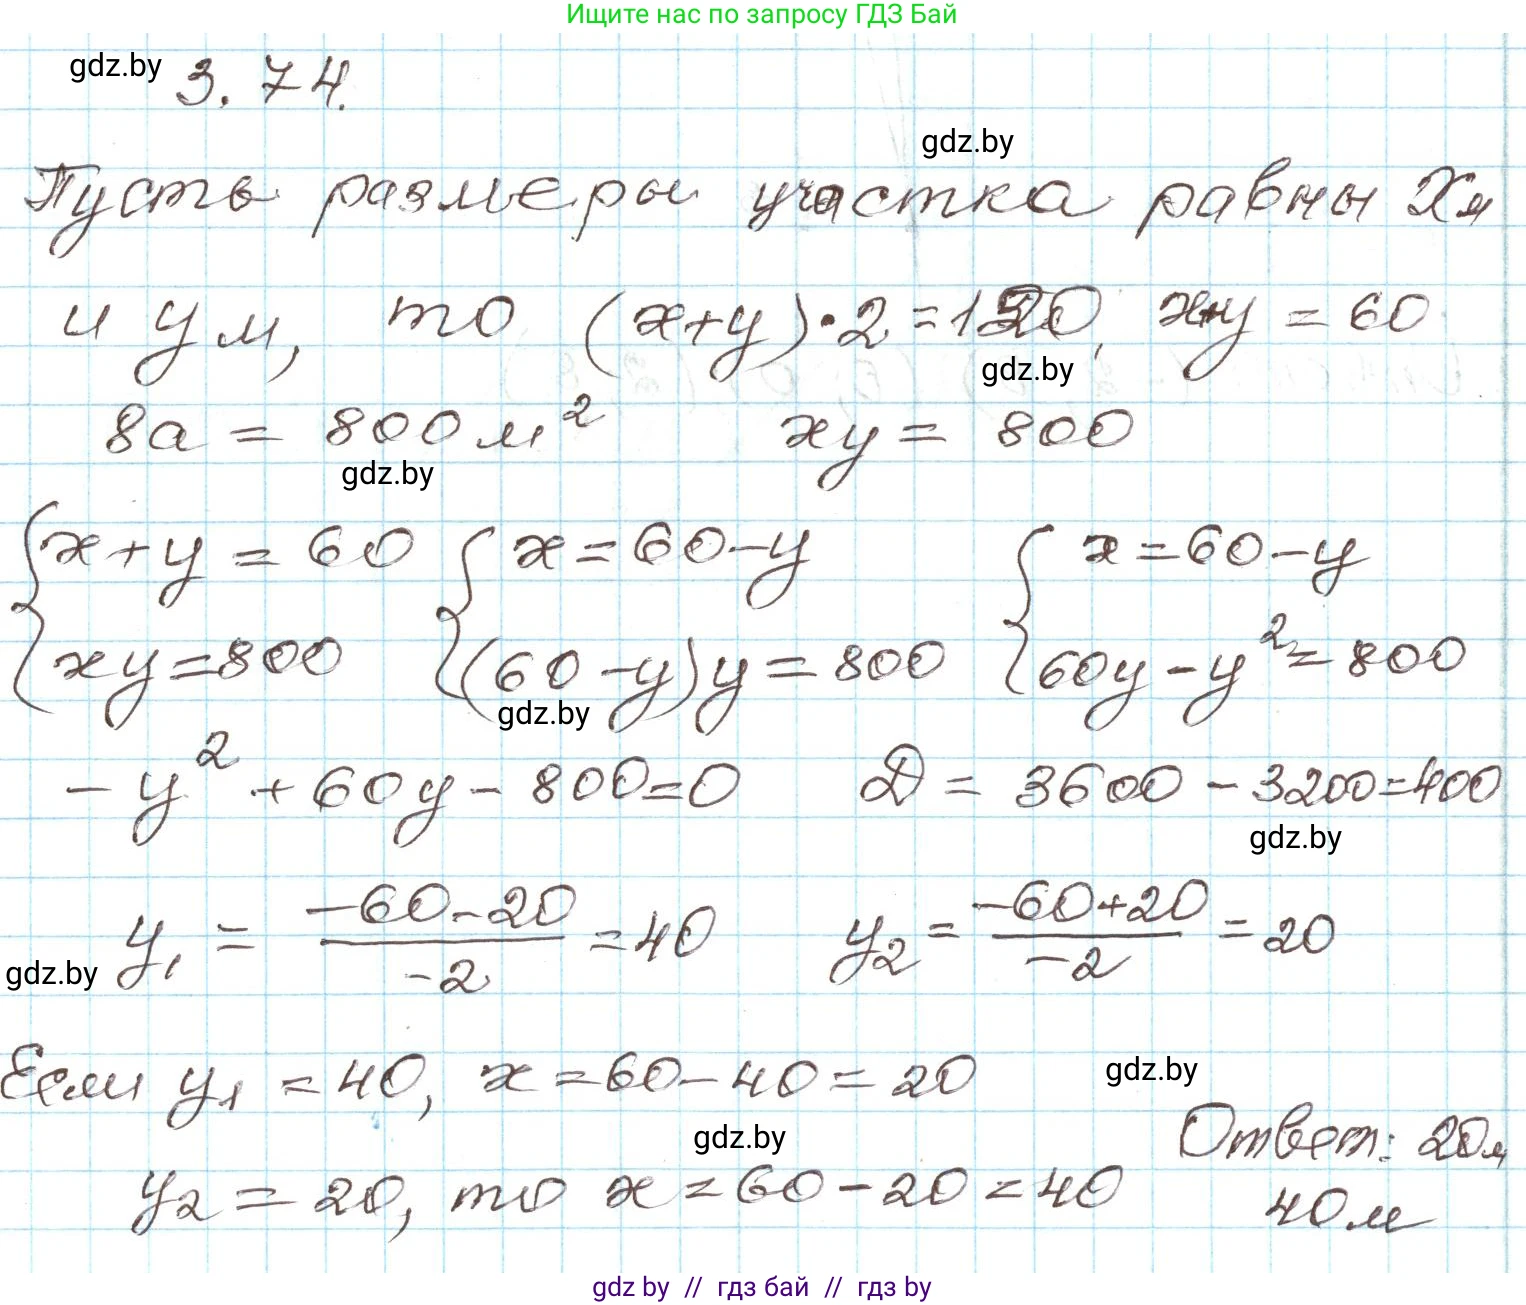 Ищите нас по запросу ГДЗ Бай
gdz.by
3.74.
gdz.by
Пусть размеры участка равны xм
и yм, то (x+y)·2=120, x+y=60
gdz.by
8a = 800м² xy = 800
gdz.by
{x+y=60 {x=60-y {x=60-y
{xy=800 {(60-y)y=800 {60y-y²=800
gdz.by
-y²+60y-800=0 D = 3600-3200=400
gdz.by
y₁ = (-60-20)/(-2) = 40 y₂ = (-60+20)/(-2) = 20
gdz.by
Если y₁ = 40, x=60-40=20
gdz.by
gdz.by
Ответ: 20м
y₂ = 20, то x=60-20=40
40м
gdz.by // гдз бай // гдз by